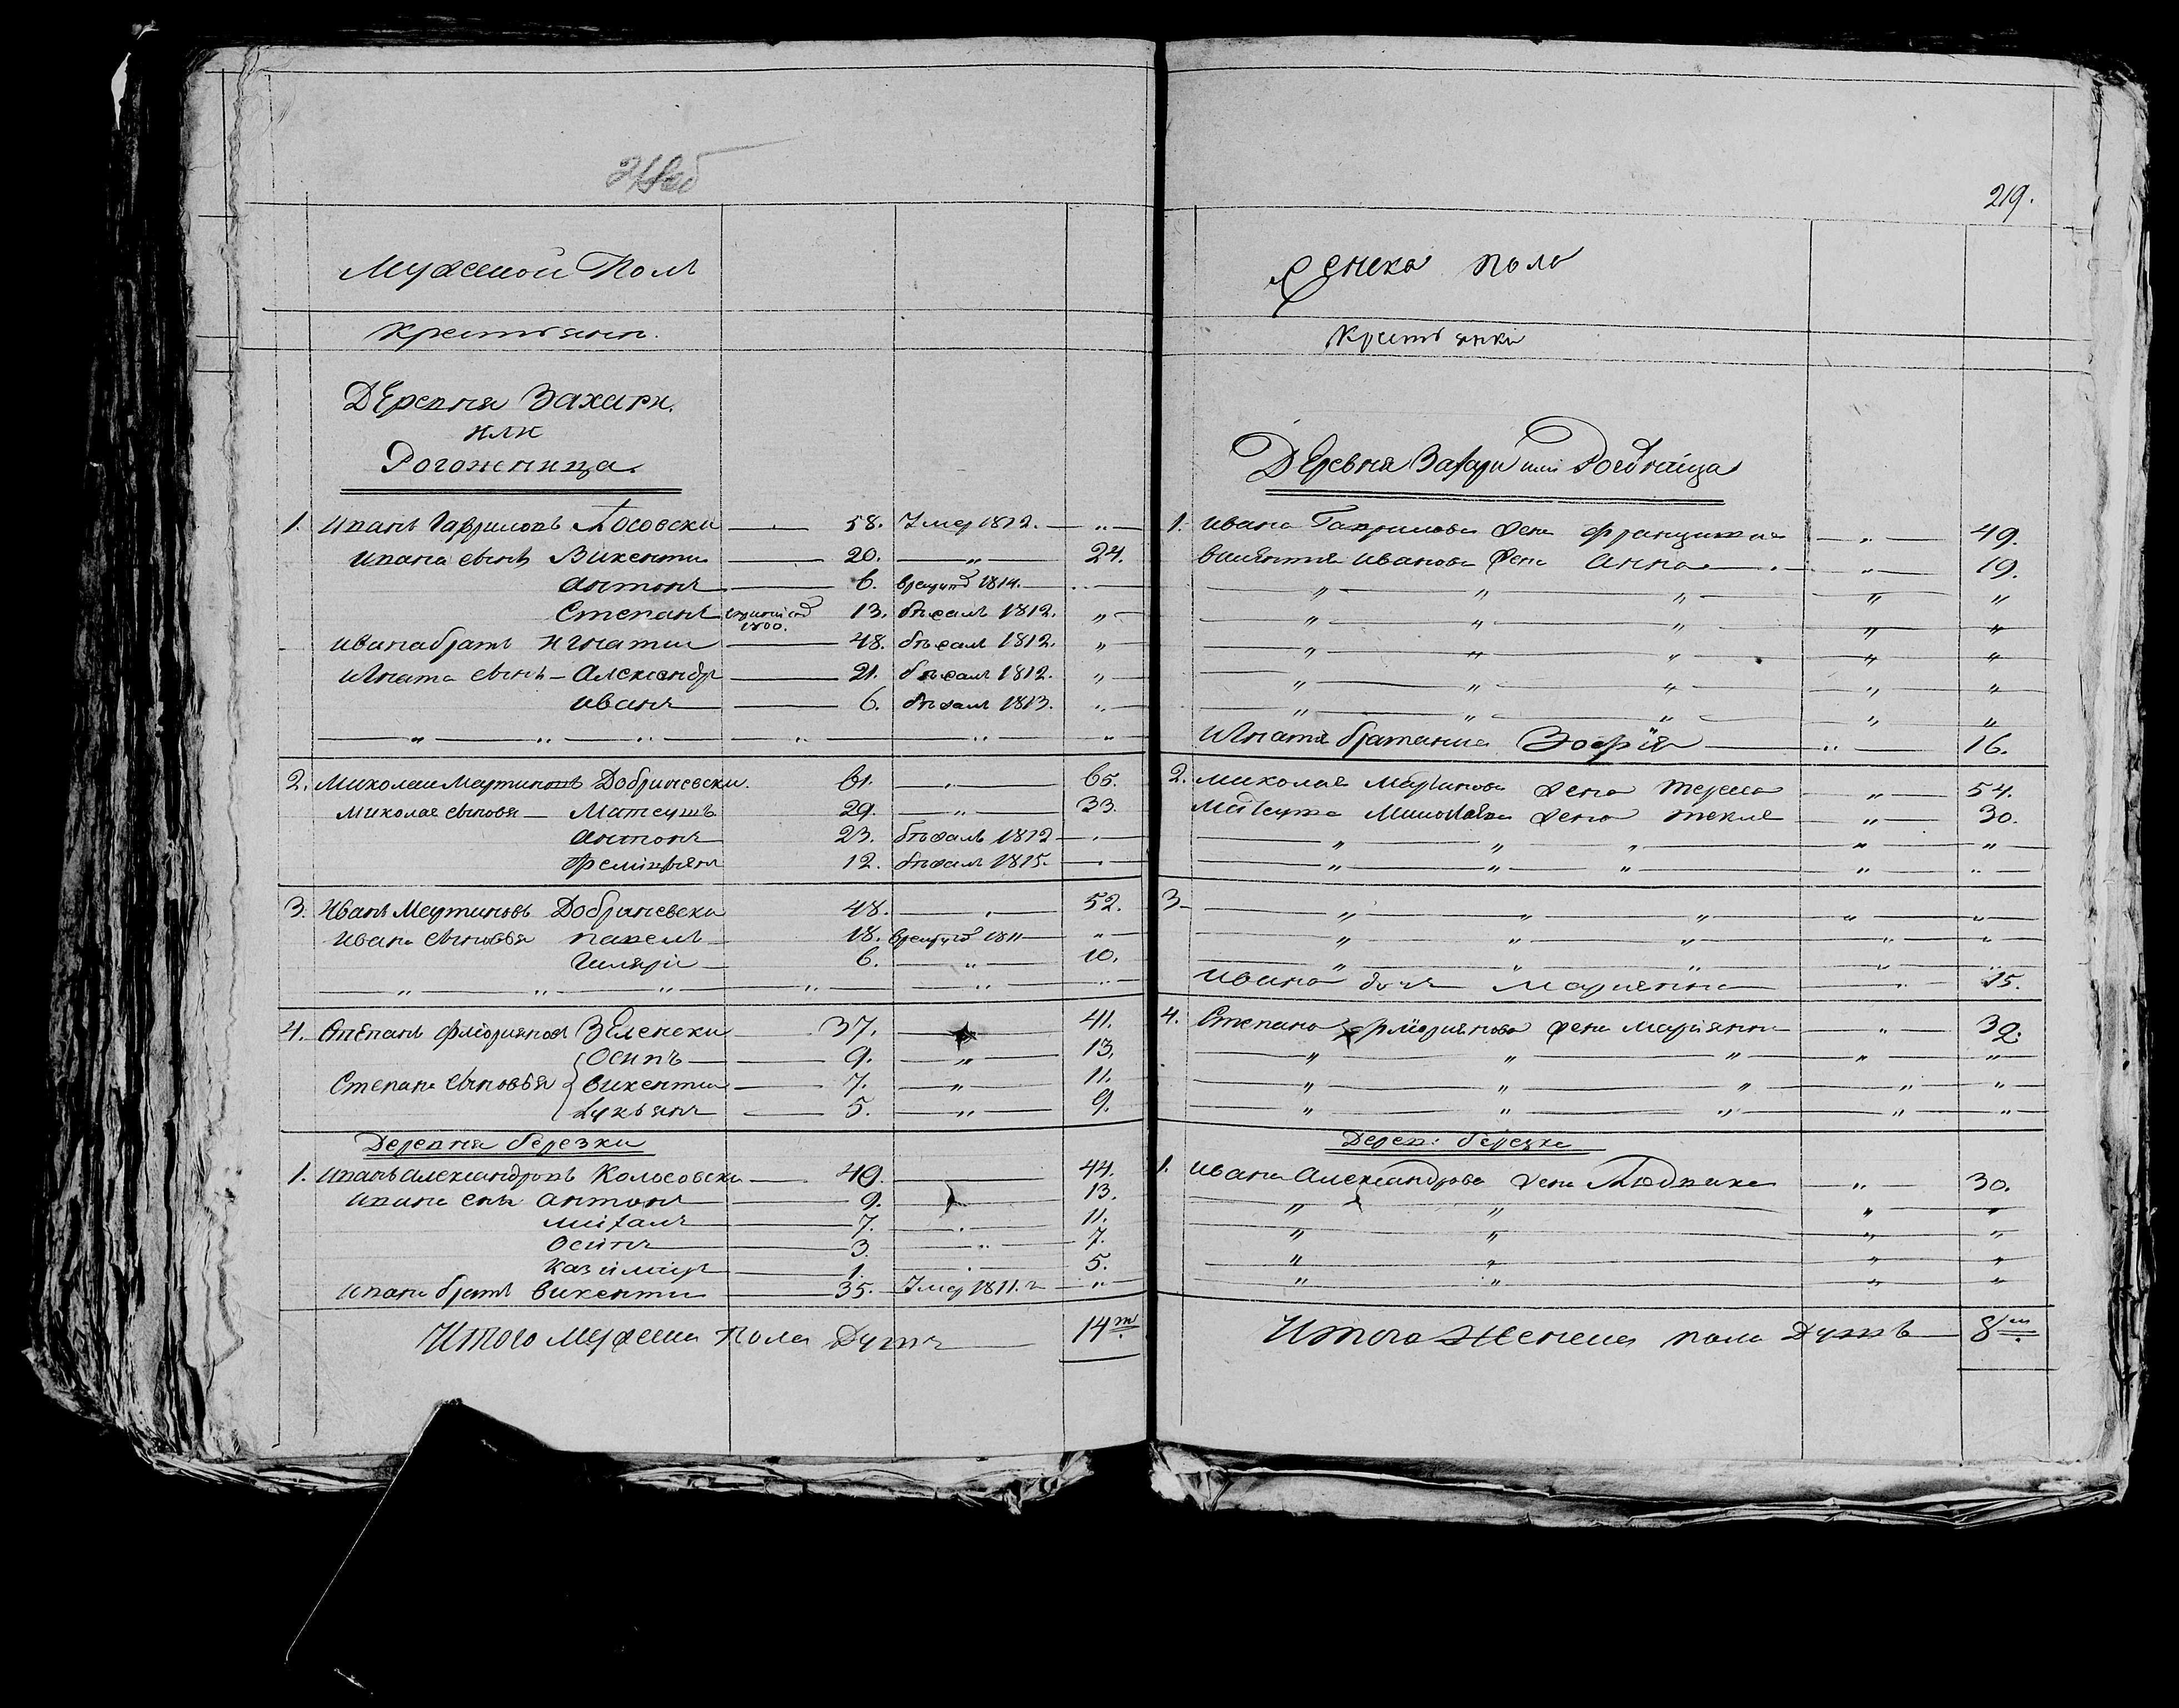 218об
Мужской Полъ
крестьянъ.
ДЕревня Захари
или
Рогожница.
1. Иванъ Гавриловъ Косовски 58. Умер 1812. "
Ивана сынъ Викенти 20. " 24.
Антонъ 6. 1814.
Степанъ 1800. 13. бѣжалъ 1812. "
Ивана братъ Игнатии 48. бѣжалъ 1812. "
Игната сынъ Александръ 21. бѣжалъ 1812. "
Иванъ 6. бѣжалъ 1813. "
" " " " " "
2. Миколаи Мартиновъ Добриневски. 61. " 65.
Миколая сыновя Матеушъ 29. " 33.
Антонъ 23. бѣжалъ 1812
12. бѣжалъ 1815.
3. Иванъ Мартиновъ Добриневски 48. " 52.
Ивана сыновья павелъ 18. 1811 "
Гиляри 6. " 10.
" " " " " "
4. Степанъ Флоряновъ ЗЕленски 37. 41.
Осипъ 9. " 13.
Степана сыновья Викентии 7. " 11.
Лукьянъ 5. " 9.
Деревня березки
1. Иванъ Александровъ Колосовски 40. 44.
Ивана снъ Антонъ 9. 13.
михалъ 7. 11.
Осипъ 3. " 7.
Казимиръ 1. 5.
Ивана братъ Викенти 35. Умер 1811. г "
Итого Мужеска Пола Душъ 14ть
219.
Женска пола
Крестьянки
ДЕревня Захари или Рогожница
1. Ивана Гаврилова жена Францишка " 49.
Викентия Иванова жена Анна " 19.
" " " " "
" " " " "
" " " " "
" " " " "
" " " " "
Игната братаница Зофия " 16.
2. Миколая Мартинова жена тереса " 54.
Матеуша Миколаева жена текля " 30.
" " " " "
" " " " "
3. " " " " "
" " " " "
" " " " "
Ивана дочъ Мариянна " 15.
4. Степана Флориянова жена Мариянна " 32.
" " " " "
" " " " "
" " " " "
Дерев: березки
1. Ивана Александрова жена Людвика " 30.
" " " "
" " " "
" " " "
" " " "
Итого Женска пола Душъ 8мь